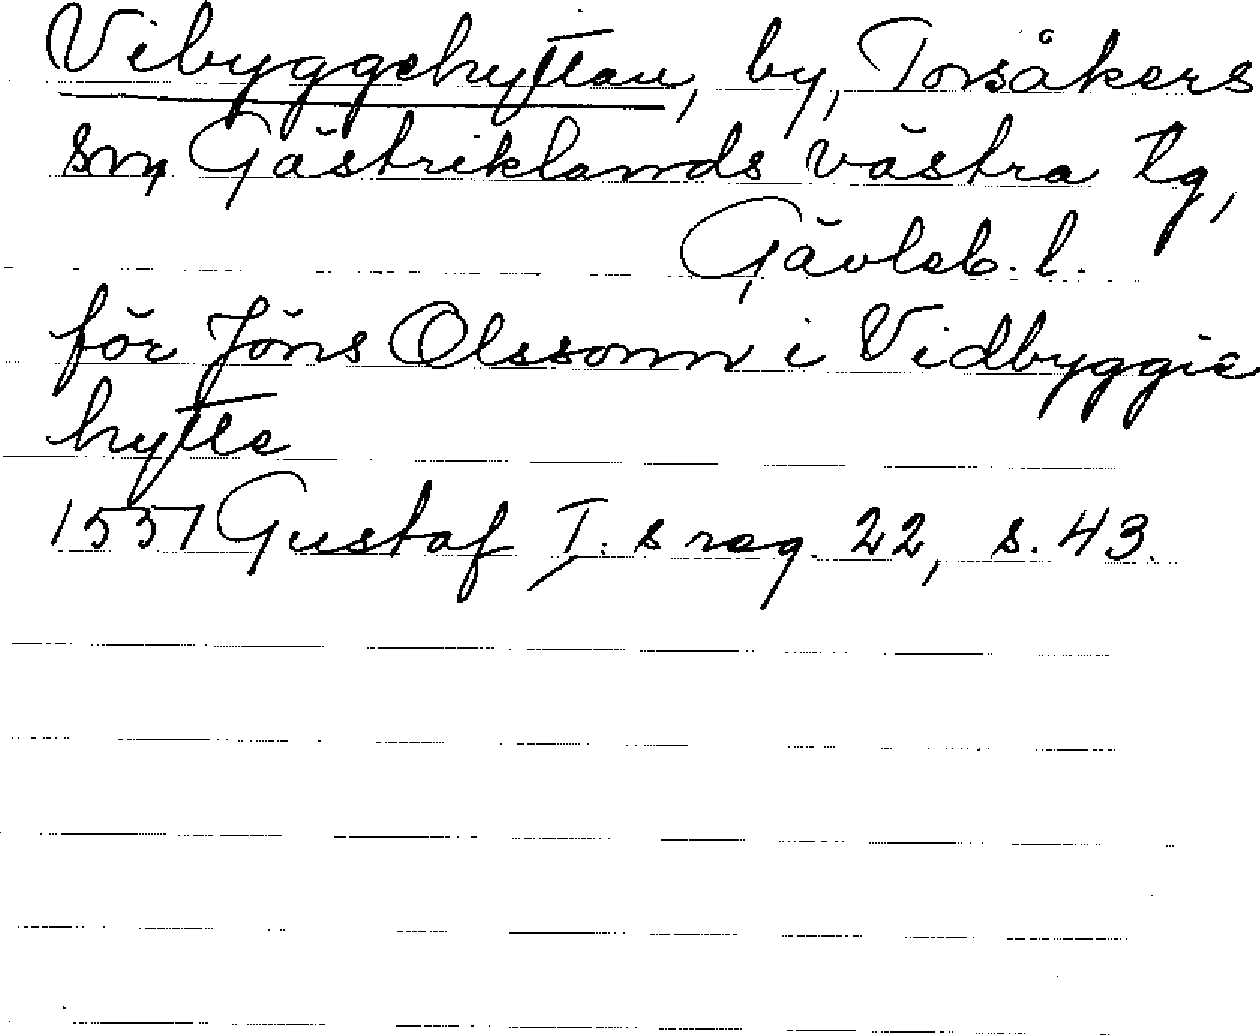 Vibyggehyttan, by, Torsåkers
sn, Gästriklands västra tg,
Gävleb. l.
för Jöns Olssonn i Vidbyggie
hytte
1557 Gustaf I:s reg. 22, s. 43.